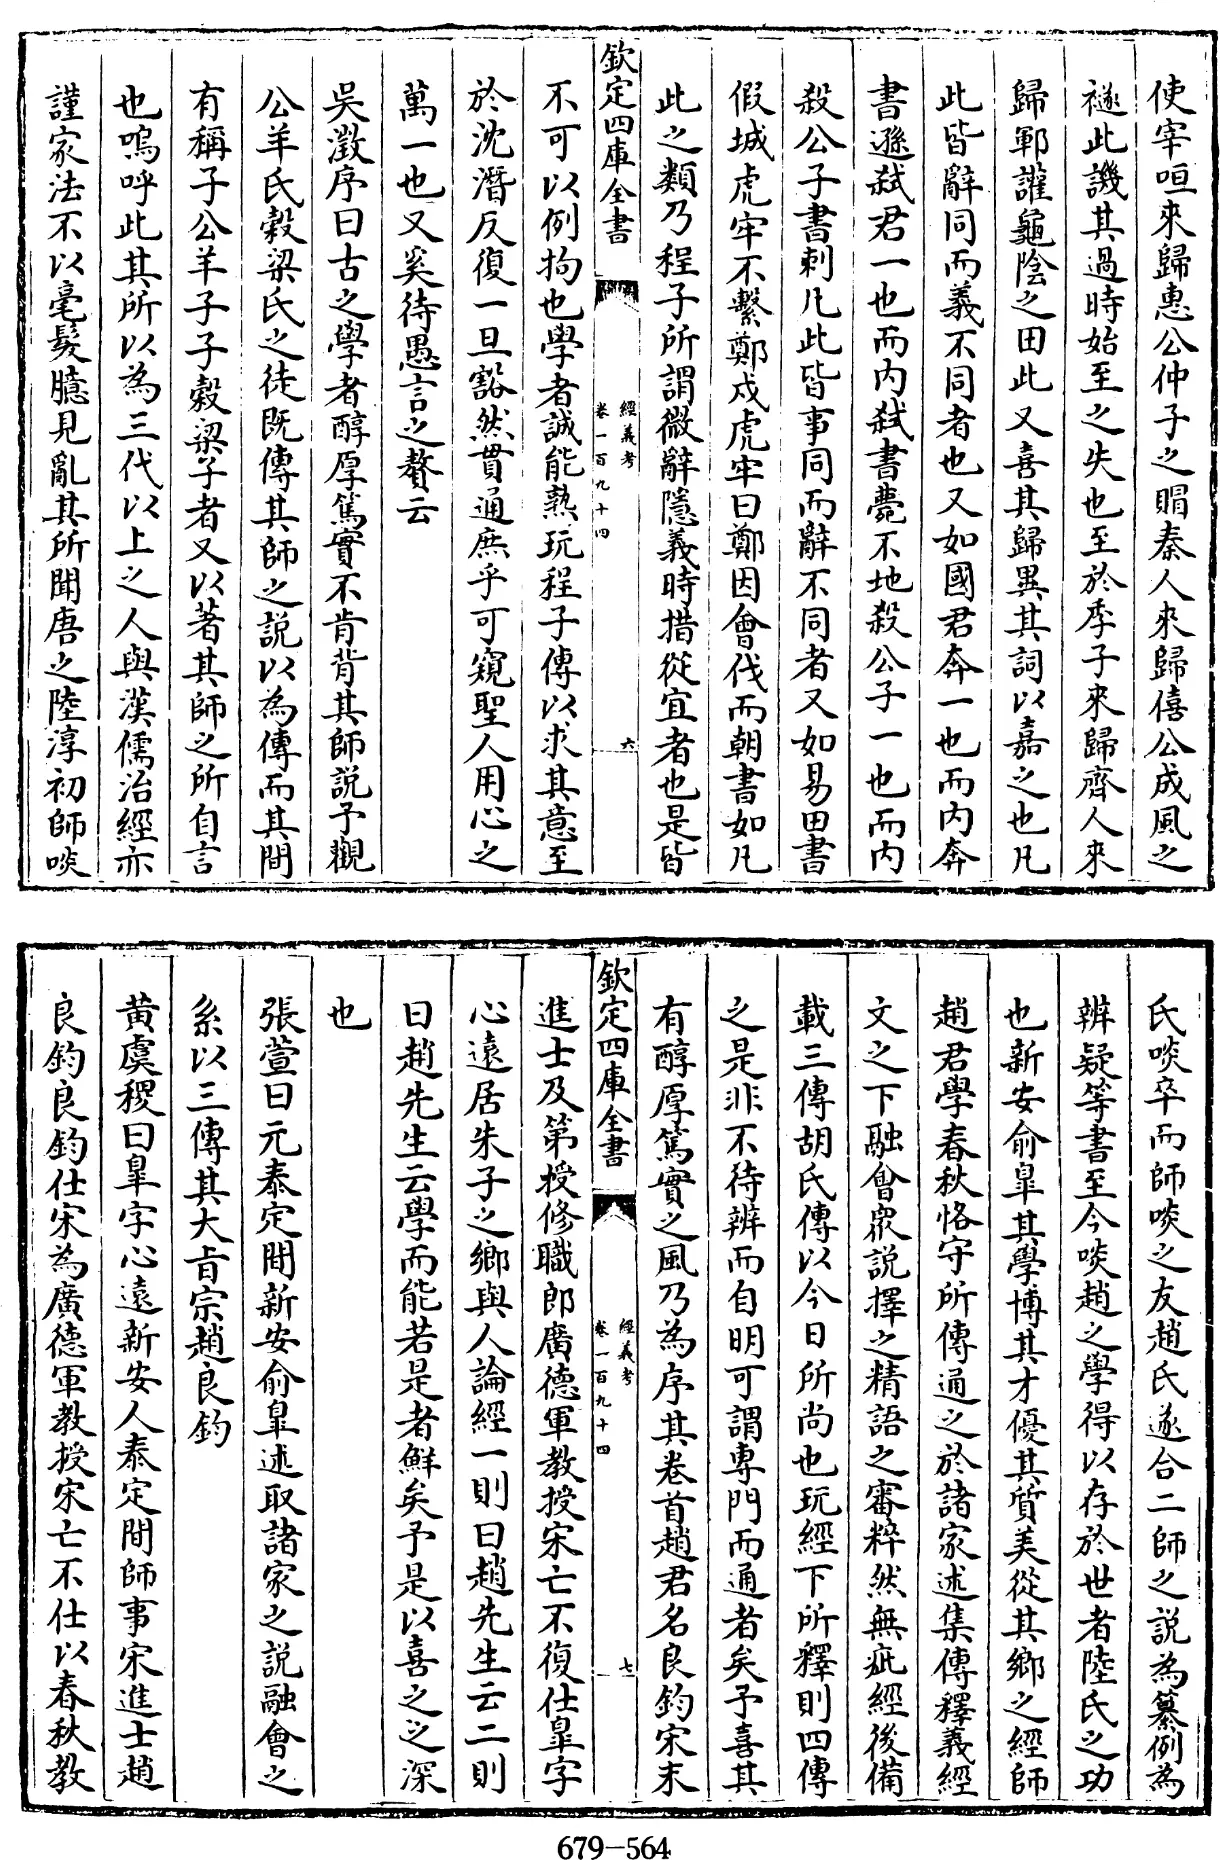 使宰咺來歸惠公仲子之賵秦人來歸僖公成風之
襚此譏其過時始至之失也至於季子來歸齊人來
歸鄆讙龜陰之田此又喜其歸異其詞以嘉之也凡
此皆辭同而義不同者也又如國君奔一也而内奔
書遜弑君一也而内弑書薨不地殺公子一也而内
殺公子書刺凡此皆事同而辭不同者又如易田書
假城虎牢不繫鄭戍虎牢曰鄭因會伐而朝書如凡
此之類乃程子所謂微辭隱義時措從宜者也是皆
欽定四庫全書
經義考
卷一百九十四
六
不可以例拘也學者誠能熟玩程子傳以求其意至
於沈潛反復一旦豁然貫通庶乎可窺聖人用心之
萬一也又奚待愚言之贅云
吳澂序曰古之學者醇厚篤實不肯背其師說予觀
公羊氏榖梁氏之徒既傳其師之說以為傳而其間
有稱子公羊子子榖梁子者又以著其師之所自言
也嗚呼此其所以為三代以上之人與漢儒治經亦
謹家法不以毫髮臆見亂其所聞唐之陸淳初師啖
氏啖卒而師啖之友趙氏遂合二師之說為纂例為
辨疑等書至今啖趙之學得以存於世者陸氏之功
也新安俞臯其學博其才優其質美從其鄉之經師
趙君學春秋恪守所傳通之於諸家述集傳釋義經
文之下融會衆說擇之精語之審粹然無疵經後備
載三傳胡氏傳以今日所尚也玩經下所釋則四傳
之是非不待辨而自明可謂専門而通者矣予喜其
有醇厚篤實之風乃為序其卷首趙君名良鈞宋末
欽定四庫全書
經義考
卷一百九十四
七
進士及第授修職郎廣德軍教授宋亡不復仕臯字
心遠居朱子之鄉與人論經一則曰趙先生云二則
曰趙先生云學而能若是者鮮矣予是以喜之之深
也
張萱曰元泰定間新安俞臯述取諸家之說融會之
系以三傳其大旨宗趙良鈞
黃虞稷曰臯字心遠新安人泰定間師事宋進士趙
良鈞良鈞仕宋為廣德軍教授宋亡不仕以春秋教
679-564